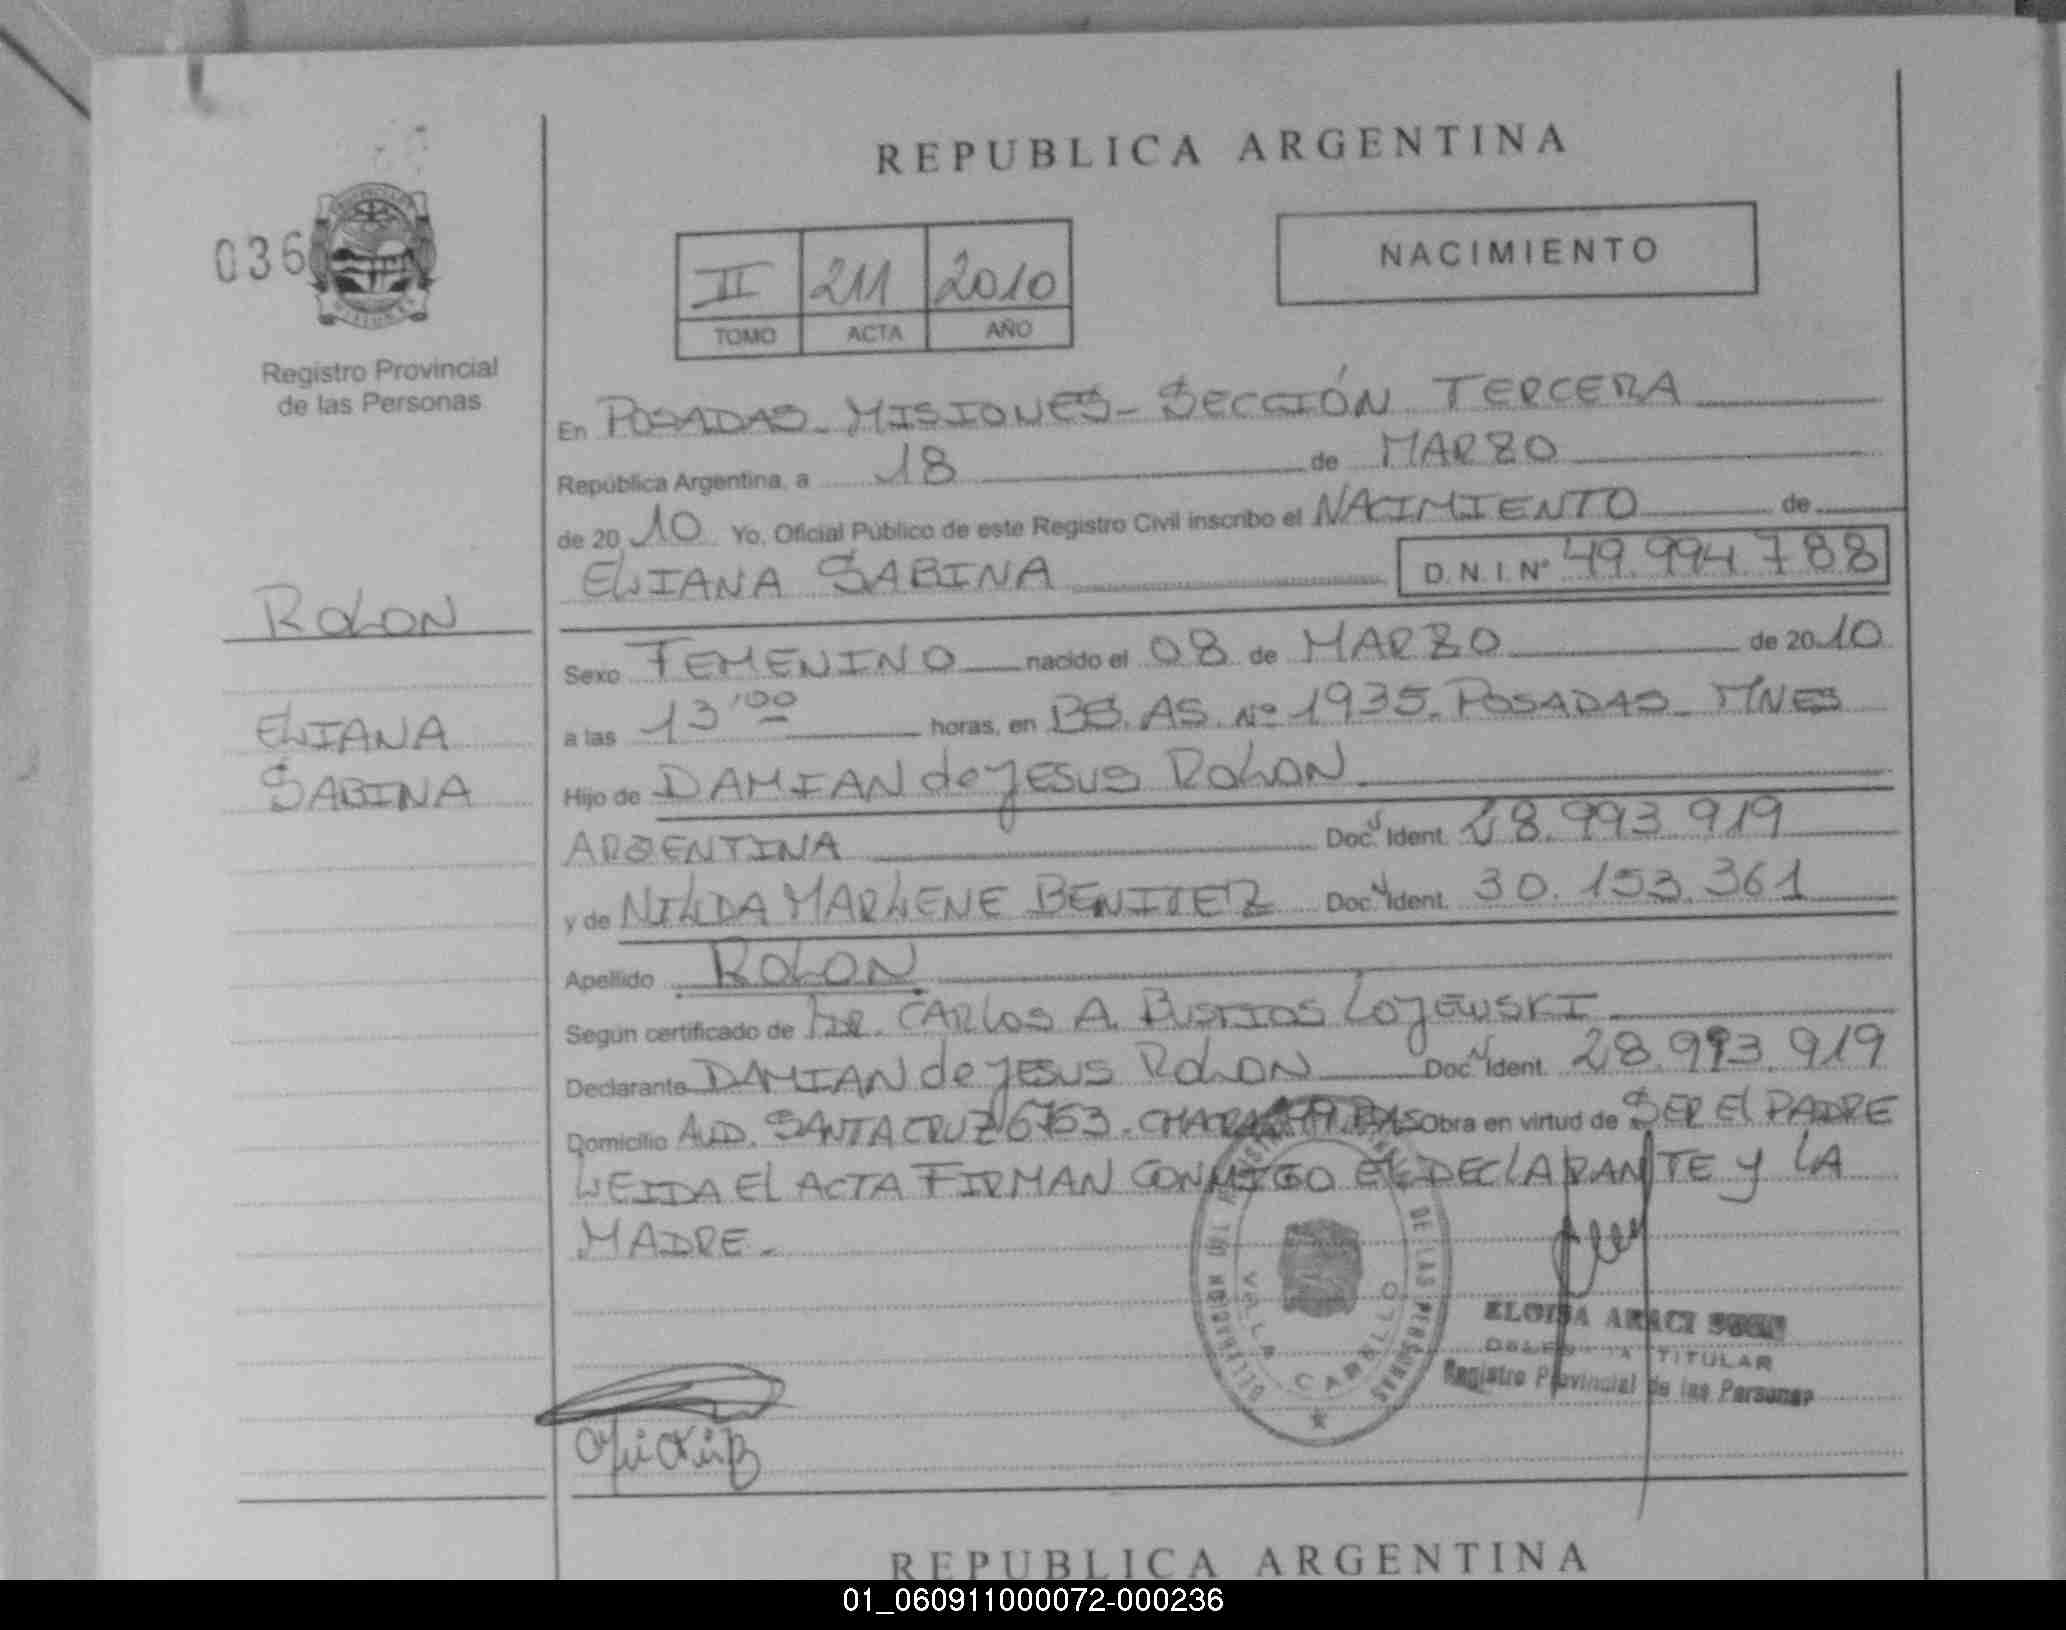 REPUBLICA ARGENTINA
036
NACIMIENTO
II 211 2010
TOMO ACTA AÑO
Registro Provincial
de las Personas
En POSADAS - MISIONES - SECCIÓN TERCERA
República Argentina, a 18 de MARZO
de 20 10 Yo, Oficial Público de este Registro Civil inscribo el NACIMIENTO de
ELIANA SABINA D.N.I. Nº 49.994.788
ROLON
ELIANA
SABINA
Sexo FEMENINO nacido el 08 de MARZO de 20 10
a las 13'00 horas, en BS. AS. Nº 1935. POSADAS - MNES
Hijo de DAMIAN de JESUS ROLON
ARGENTINA Doc. Ident. 28.993.919
y de NILDA MARLENE BENITEZ Doc. Ident. 30.153.361
Apellido ROLON
Según certificado de DR. CARLOS A. BUSTOS LOJEWSKI
Declarante DAMIAN de JESUS ROLON Doc. Ident. 28.993.919
Domicilio AVD. SANTA CRUZ 6753 - Obra en virtud de SER EL PADRE
LEIDA EL ACTA FIRMAN CONMIGO EL DECLARANTE Y LA
MADRE -
DE LAS PERSONAS
CABELLO
ELOISA ARACI
TITULAR
Registro Provincial de las Personas
REPUBLICA ARGENTINA
01_060911000072-000236